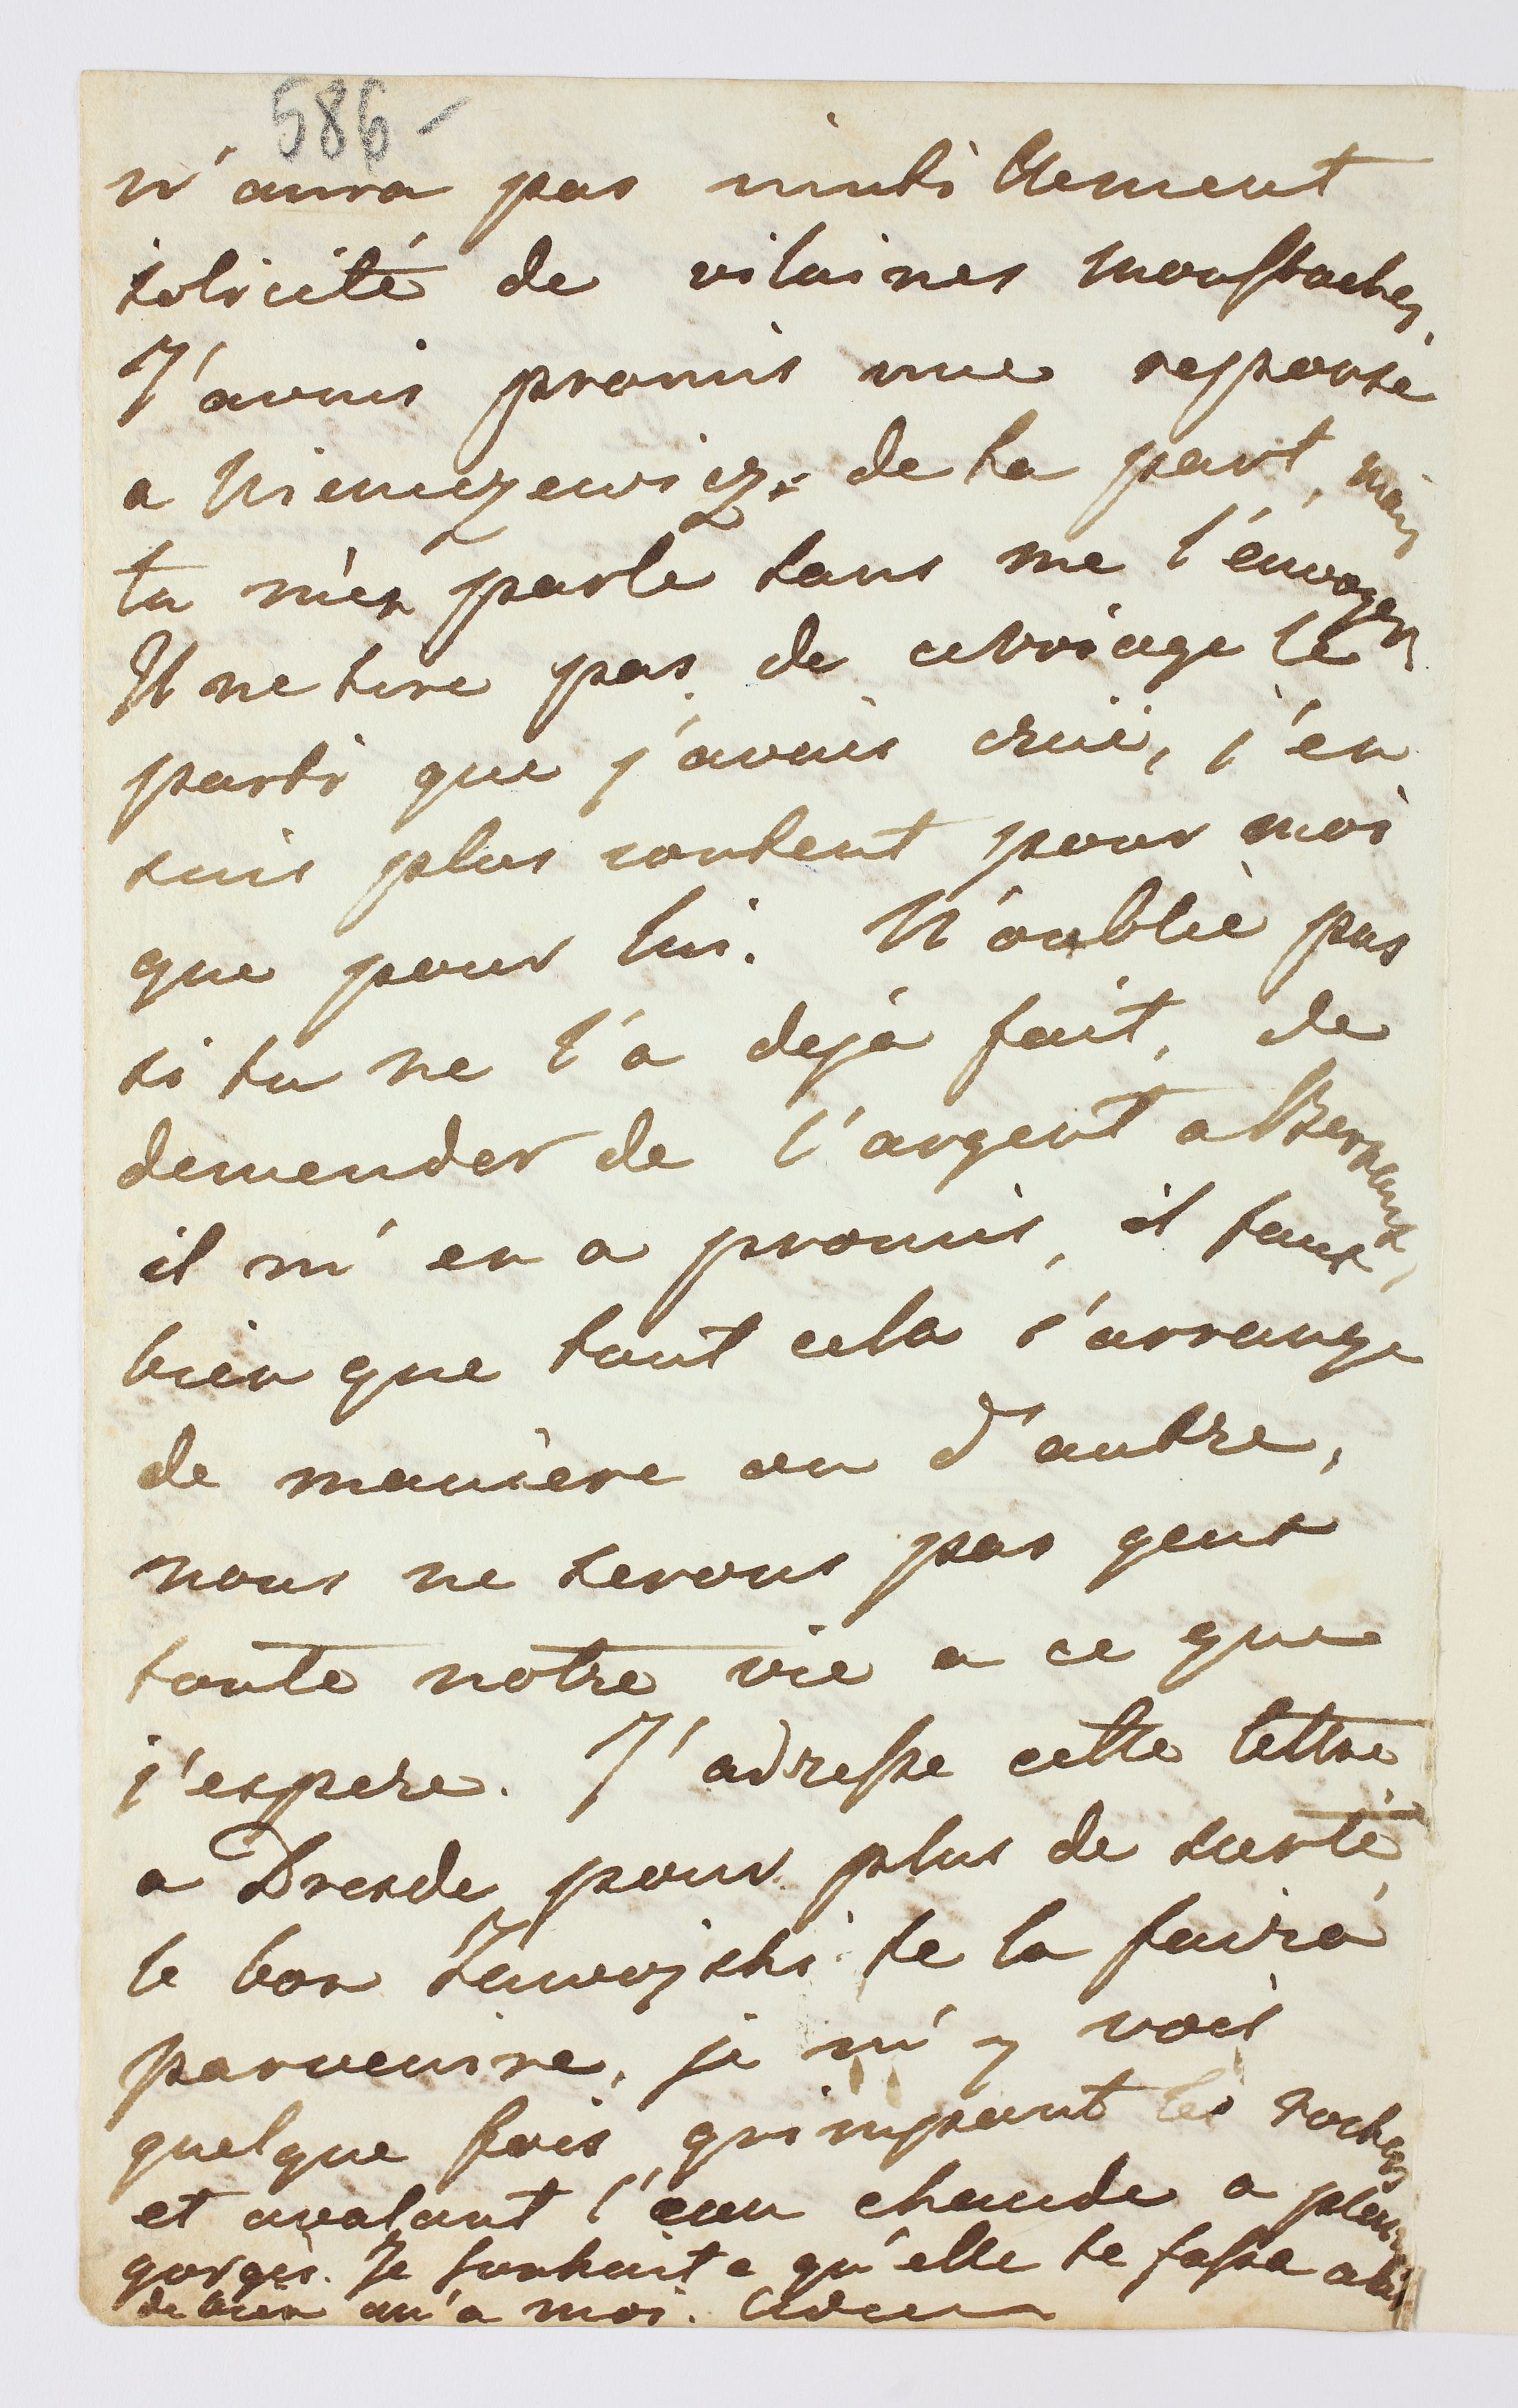 586 -
n'aura pas inutillement
solicité de vilaines moustaches.
J'avais promis une response
a Niemczewicz de ta part, mais
tu m'en parle sans me l'envoyer
Il ne tire pas de ce voiage le
parti que j'avais crue, j'en
suis plus content pour moi
que pour lui. N'oublie pas
si tu ne l'a dejà fait, de
demender de l'argent a
il m'en a promis, il faut
bien que tout cela s'arrange
de manière ou d'autre,
nous ne serons pas geux
toute notre vie a ce que
j'espere. J'adresse cette lettre
a Dresde pour plus de surté,
le bon te la faira
parvenire, je m'y vois
quelque fois grimpant les rochers
et avalant l'eau chaude a pleine
gorges. Je souhaite qu'elle te fasse
de bien qu'a moi. Adieu